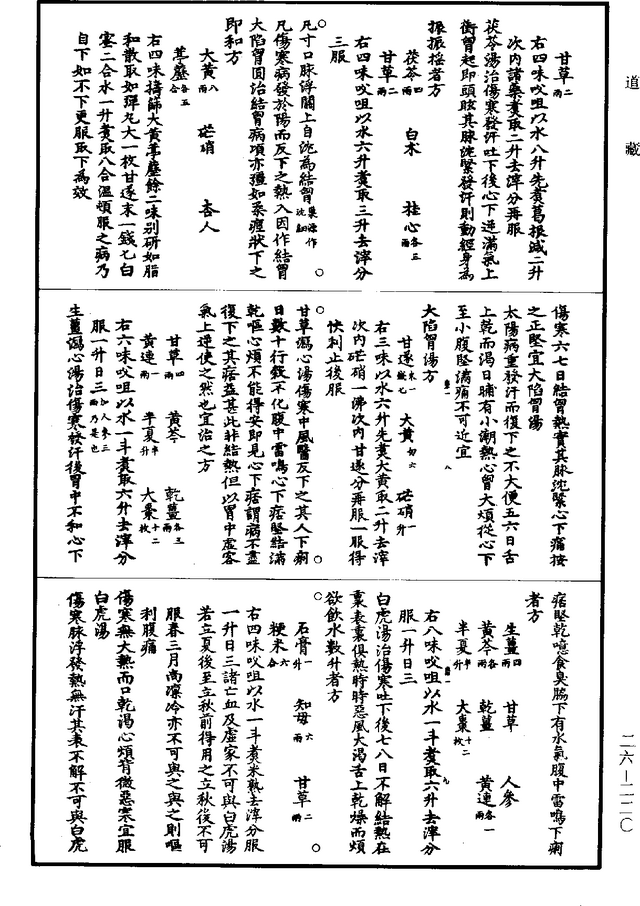 道藏
甘草二兩
右四味㕮咀以水八升先煮葛根減二升
次内諸藥煮取二升去滓分再服
茯苓湯治傷寒發汗吐下後心下逆滿氣上
衝胷起即頭眩其脉沈緊發汗則動經身為
振振搖者方
茯苓四兩 白朮 桂心各三兩
甘草二兩
右四味㕮咀以水六升煮取三升去滓分
三服
凡寸口脉浮關上自沈為結胷巢源作沈細
凡傷寒病發於陽而反下之熱入因作結胷
大陷胷圓治結胷病項亦彊如柔痙狀下之
即和方
大黄八兩 芒硝 杏人
葶藶各五合
右四味擣篩大黄葶藶餘二味别研如脂
和散取如彈丸大一枚甘遂末一錢匕白
蜜二合水一升煮取八合温頓服之病乃
自下如不下更服取下為效
傷寒六七日結胷熱實其脉沈緊心下痛按
之正堅宜大陷胷湯
太陽病重發汗而復下之不大便五六日舌
上乾而渴日晡有小潮熱心胷大煩從心下
至小腹堅滿痛不可近宜
大陷胷湯方
甘遂末一錢匕 大黄切六兩 芒硝一升
右三味以水六升先煮大黄取二升去滓
次内芒硝一沸次内甘遂分再服一服得
快利止後服
甘草瀉心湯傷寒中風醫反下之其人下痢
日數十行穀不化腹中雷鳴心下痞堅結滿
乾嘔心煩不能得安即見心下痞謂病不盡
復下之其痞益甚此非結熱但以胃中虛客
氣上逆使之然也宜治之方
甘草四兩 黄芩 乾薑各三兩
黄連一兩 半夏半升 大棗十二枚
右六味㕮咀以水一斗煮取六升去滓分
服一升日三加人參三兩乃是也
生薑瀉心湯治傷寒發汗後胃中不和心下
痞堅乾噫食臭脇下有水氣腹中雷鳴下痢
者方
生薑四兩 甘草 人參
黄芩各三兩 乾薑 黄連各一兩
半夏半升 大棗十二枚
右八味㕮咀以水一斗煮取六升去滓分
服一升日三
白虎湯治傷寒吐下後七八日不解結熱在
裏表裏俱熱時時惡風大渴舌上乾燥而煩
欲飲水數升者方
石膏一升 知母六兩 甘草二兩
粳米六合
右四味㕮咀以水一斗煮米熟去滓分服
一升日三諸亡血及虛家不可與白虎湯
若立夏後至立秋前得用之立秋後不可
服春三月尚凛冷亦不可與之與之則嘔
利腹痛
傷寒無大熱而口乾渴心煩背微惡寒宜服
白虎湯
傷寒脉浮發熱無汗其表不解不可與白虎
二六—二二〇